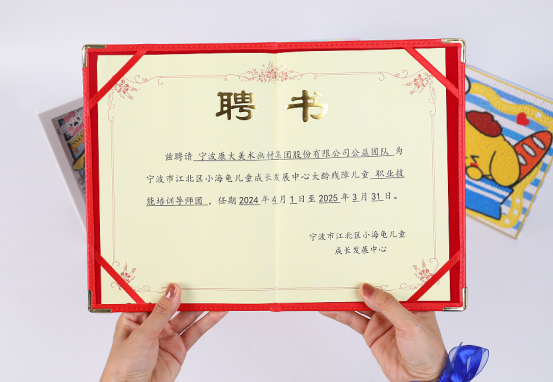 聘 书
兹聘请 宁波康大美术画材集团股份有限公司公益团队 为
宁波市江北区小海龟儿童成长发展中心大龄残障儿童 职业技
能培训导师团 ，任期 2024 年 4 月 1 日至 2025 年 3 月 31 日。
宁波市江北区小海龟儿童
成长发展中心